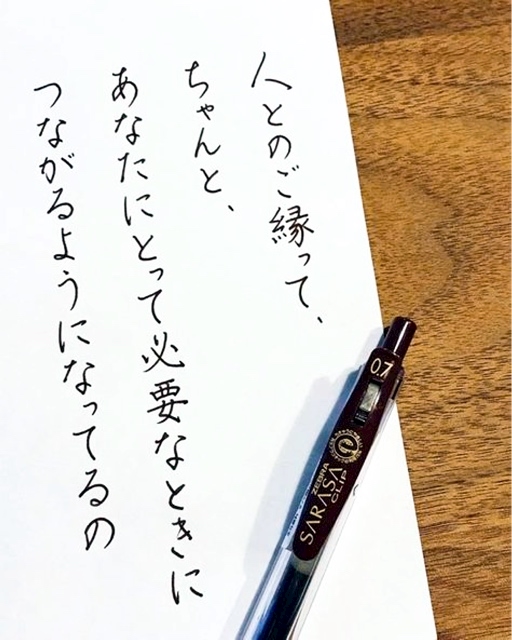 人とのご縁って、
ちゃんと、
あなたにとって必要なときに
つながるようになってるの
0.7
ZEBRA
SARASA
CLIP